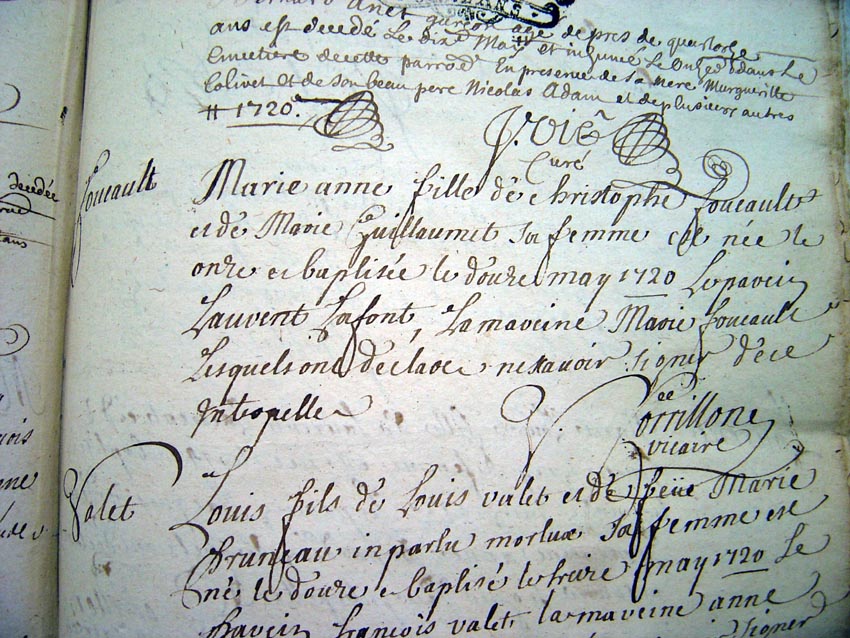 Bernard Anet garçon agé de pres de quatorze
ans est decedé Le dix.e May et inhumé Le Onze dans Le
Cimetiere de cette parroé En presence de sa mere Murguerille
Colivet et de son beau pere Nicolas Adam et de plusieurs autres
# 1720.
Curé
Foucault
Marie anne fille de christophe foucault
et de Marie Guillaumet sa femme est née le
onze et baptisée le douze may 1720 Le parein
Laurent Lafont, La mareine Marie foucault
Lesquels ont déclaré ne savoir signer de ce
Interpelle
Vicaire
Valet
Louis fils de Louis valet et de feüe Marie
bruneau in partu mortua sa femme est
né le douze et baptisé le treize may 1720 Le
parein françois valet la mareine anne
signer
decedée